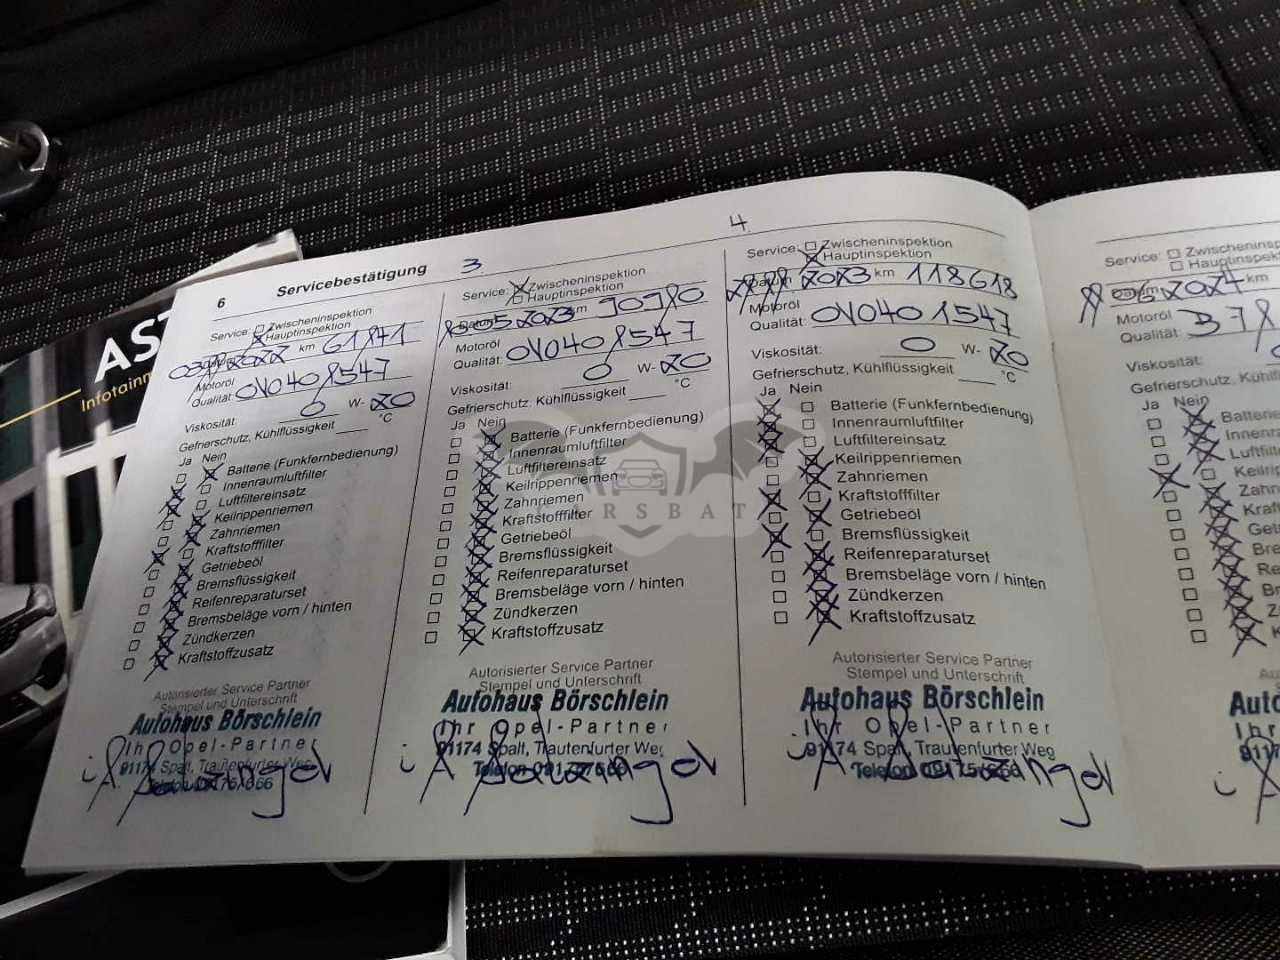 AST
Infotainm
6 Servicebestätigung 3
Service: Zwischeninspektion
Hauptinspektion
km 61841
Motoröl
Qualität: OV0401547
Viskosität: 0 W- 20
Gefrierschutz, Kühlflüssigkeit °C
Ja Nein
Batterie (Funkfernbedienung)
Innenraumluftfilter
Luftfiltereinsatz
Keilrippenriemen
Zahnriemen
Kraftstofffilter
Getriebeöl
Bremsflüssigkeit
Reifenreparaturset
Bremsbeläge vorn / hinten
Zündkerzen
Kraftstoffzusatz
Autorisierter Service Partner
Stempel und Unterschrift
Autohaus Börschlein
Ihr Opel-Partner
91174 Spalt, Trautenfurter Weg
Service: Zwischeninspektion
Hauptinspektion
Datum 2023 km 90980
Motoröl
Qualität: OV0401547
Viskosität: 0 W- 20
Gefrierschutz, Kühlflüssigkeit °C
Ja Nein
Batterie (Funkfernbedienung)
Innenraumluftfilter
Luftfiltereinsatz
Keilrippenriemen
Zahnriemen
Kraftstofffilter
Getriebeöl
Bremsflüssigkeit
Reifenreparaturset
Bremsbeläge vorn / hinten
Zündkerzen
Kraftstoffzusatz
Autorisierter Service Partner
Stempel und Unterschrift
Autohaus Börschlein
Ihr Opel-Partner
91174 Spalt, Trautenfurter Weg
Telefon
4
Service: Zwischeninspektion
Hauptinspektion
Datum 2023 km 118618
Motoröl
Qualität: OV0401547
Viskosität: 0 W- 20
Gefrierschutz, Kühlflüssigkeit °C
Ja Nein
Batterie (Funkfernbedienung)
Innenraumluftfilter
Luftfiltereinsatz
Keilrippenriemen
Zahnriemen
Kraftstofffilter
Getriebeöl
Bremsflüssigkeit
Reifenreparaturset
Bremsbeläge vorn / hinten
Zündkerzen
Kraftstoffzusatz
Autorisierter Service Partner
Stempel und Unterschrift
Autohaus Börschlein
Ihr Opel-Partner
91174 Spalt, Trautenfurter Weg
Telefon
Service: Zwischeninsp
Hauptinspekti
2024 km
Motoröl
Qualität:
Viskosität:
Gefrierschutz, Kühlflüssi
Ja Nein
Batteri
Innenra
Luftfilt
Keilri
Zahn
Kraf
Get
Bre
Re
Br
Z
K
Auto
Ihr
91174
CARSBAT